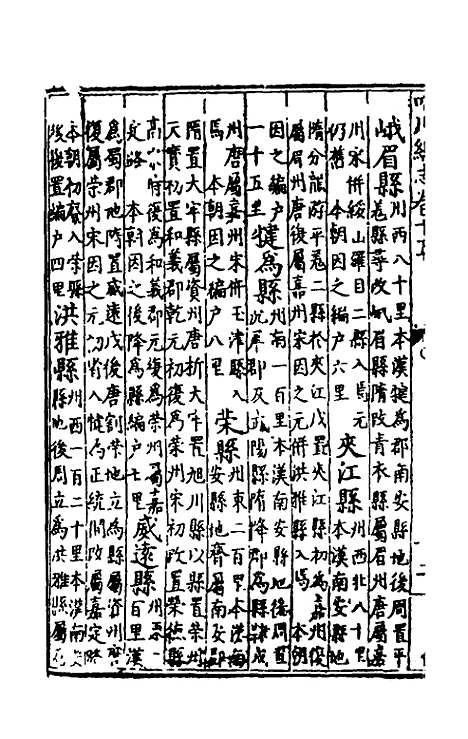 峨眉縣 州西八十里本漢犍為郡南安縣地後周置平
羌縣尋改峨眉縣隋改青衣縣屬眉州唐屬嘉
州宋併綏山羅目二縣入焉元
仍舊 本朝因之編戶六里 夾江縣 州西北八十里
本漢南安縣地
隋分龍游平羌二縣於夾江戍置夾江縣初為嘉州後
屬眉州唐復屬嘉州宋因之元併洪雅縣入焉 本朝
因之編戶
一十五里 犍為縣 州南一百里本漢南安縣地後周置
沉犀郡及武陽縣隋降郡為縣
州唐屬嘉州宋併玉津縣入
焉 本朝因之編戶八里 榮縣 州東二百里本漢
安縣地齊屬南安郡
隋置大牢縣屬資州唐析大牢置旭川縣以縣置榮州
天寶初置和義郡乾元初復為榮州宋初改置榮德縣
高 府後為和義郡元復為榮州 嘉
定路 本朝因之後降為縣編戶七里 威遠縣 州
百里漢
為蜀郡地隋置威遠戍後唐割榮地立為縣屬資州
復屬榮州宋因之元初省入犍為正統間改屬嘉定路
本朝初 入榮縣
後復置編戶四里 洪雅縣 州西一百二十里本漢南安
縣地後周立為洪雅縣屬